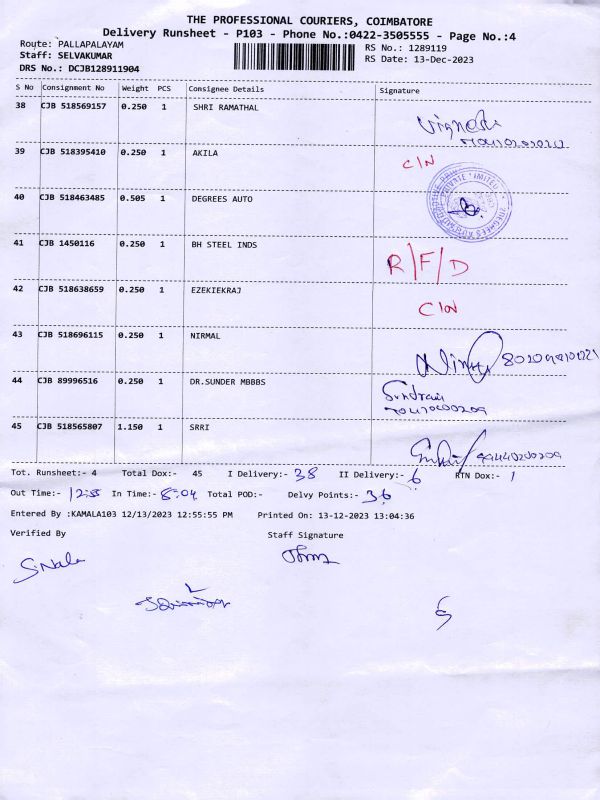 THE PROFESSIONAL COURIERS, COIMBATORE
Delivery Runsheet - P103 - Phone No.:0422-3505555 - Page No.:4
Route: PALLAPALAYAM RS No.: 1289119
Staff: SELVAKUMAR RS Date: 13-Dec-2023
DRS No.: DCJB128911904
S No Consignment No Weight PCS Consignee Details Signature
38 CJB 518569157 0.250 1 SHRI RAMATHAL
39 CJB 518395410 0.250 1 AKILA C/N
40 CJB 518463485 0.505 1 DEGREES AUTO
41 CJB 1450116 0.250 1 BH STEEL INDS R/F/D
42 CJB 518638659 0.250 1 EZEKIEKRAJ C/N
43 CJB 518696115 0.250 1 NIRMAL
44 CJB 89996516 0.250 1 DR.SUNDER MBBBS
45 CJB 518565807 1.150 1 SRRI
Tot. Runsheet:- 4 Total Dox:- 45 I Delivery:- 38 II Delivery:- 6 RTN Dox:- 1
Out Time:- 12:55 In Time:- 8:04 Total POD:- Delvy Points:- 36
Entered By :KAMALA103 12/13/2023 12:55:55 PM Printed On: 13-12-2023 13:04:36
Verified By Staff Signature